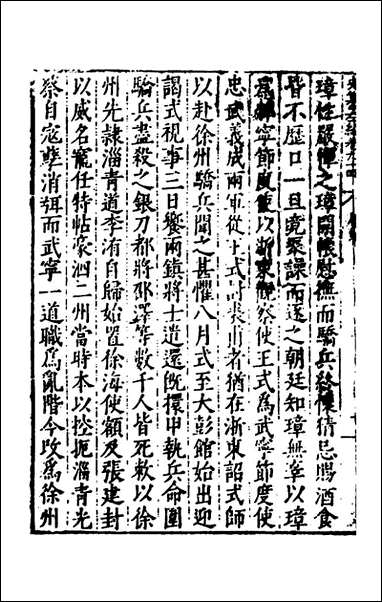 璋性嚴憚之璋開懷慰撫而驕兵終懷猜忌賜酒食
皆不歷口一旦竟聚譟而逐之朝廷知璋無辜以璋
爲邠寧節度使以浙東觀察使王式爲武寧節度使
忠武義成兩軍從王式討裘甫者猶在浙東詔式帥
以赴徐州驕兵聞之甚懼八月式至大彭館始出迎
謁式視事三日饗兩鎮將士遣還既擐甲執兵命圍
驕兵盡殺之銀刀都將邵澤等數千人皆死敕以徐
州先隸淄青道李洧自歸始置徐海使額及張建封
以威名寵任特帖濠泗二州當時本以控扼淄青光
蔡自寇孽消弭而武寧一道職爲亂階今改爲徐州